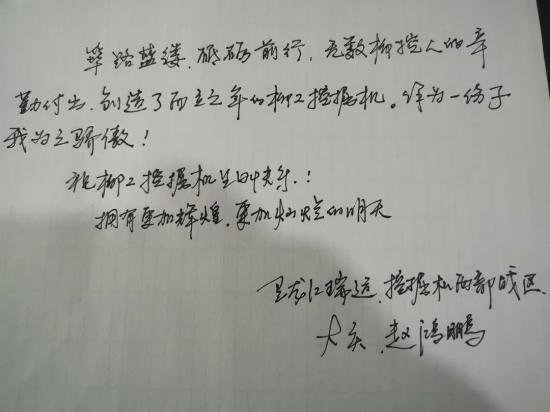 筚路蓝缕，砥砺前行，无数柳挖人的辛
勤付出，创造了而立之年的柳工挖掘机。作为一份子
我为之骄傲！
祝柳工挖掘机生日快乐！
拥有更加辉煌，更加灿烂的明天
黑龙江瑞远，挖掘机西部战区
大庆，赵鸿鹏